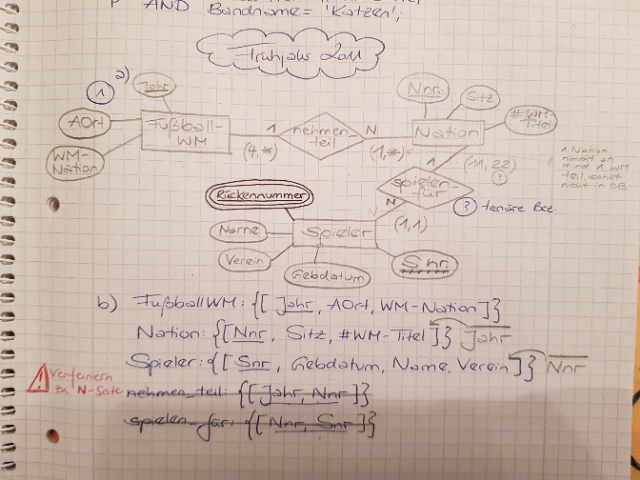 P AND Bandname = 'Katzen';
Frühjahr 2011
1 a)
Jahr
AOrt
WM-Nation
Fußball-WM
1
(4,*)
nehmen-teil
N
(1,*)
Nation
Nnr
Sitz
#WM-Titel
1 Nation
nimmt an
mind. 1 WM
teil, sonst
nicht in DB
1
(11,22)
?
spielen-für
N
(1,1)
? tenäre Bez.
Rückennummer
Name
Verein
Spieler
Gebdatum
Snr
b) FußballWM: {[Jahr, AOrt, WM-Nation]}
Nation: {[Nnr, Sitz, #WM-Titel]} Jahr
Spieler: {[Snr, Gebdatum, Name, Verein]} Nnr
Verfeinern
zu N-Seite
nehmen_teil: {[Jahr, Nnr]}
spielen_für: {[Nnr, Snr]}